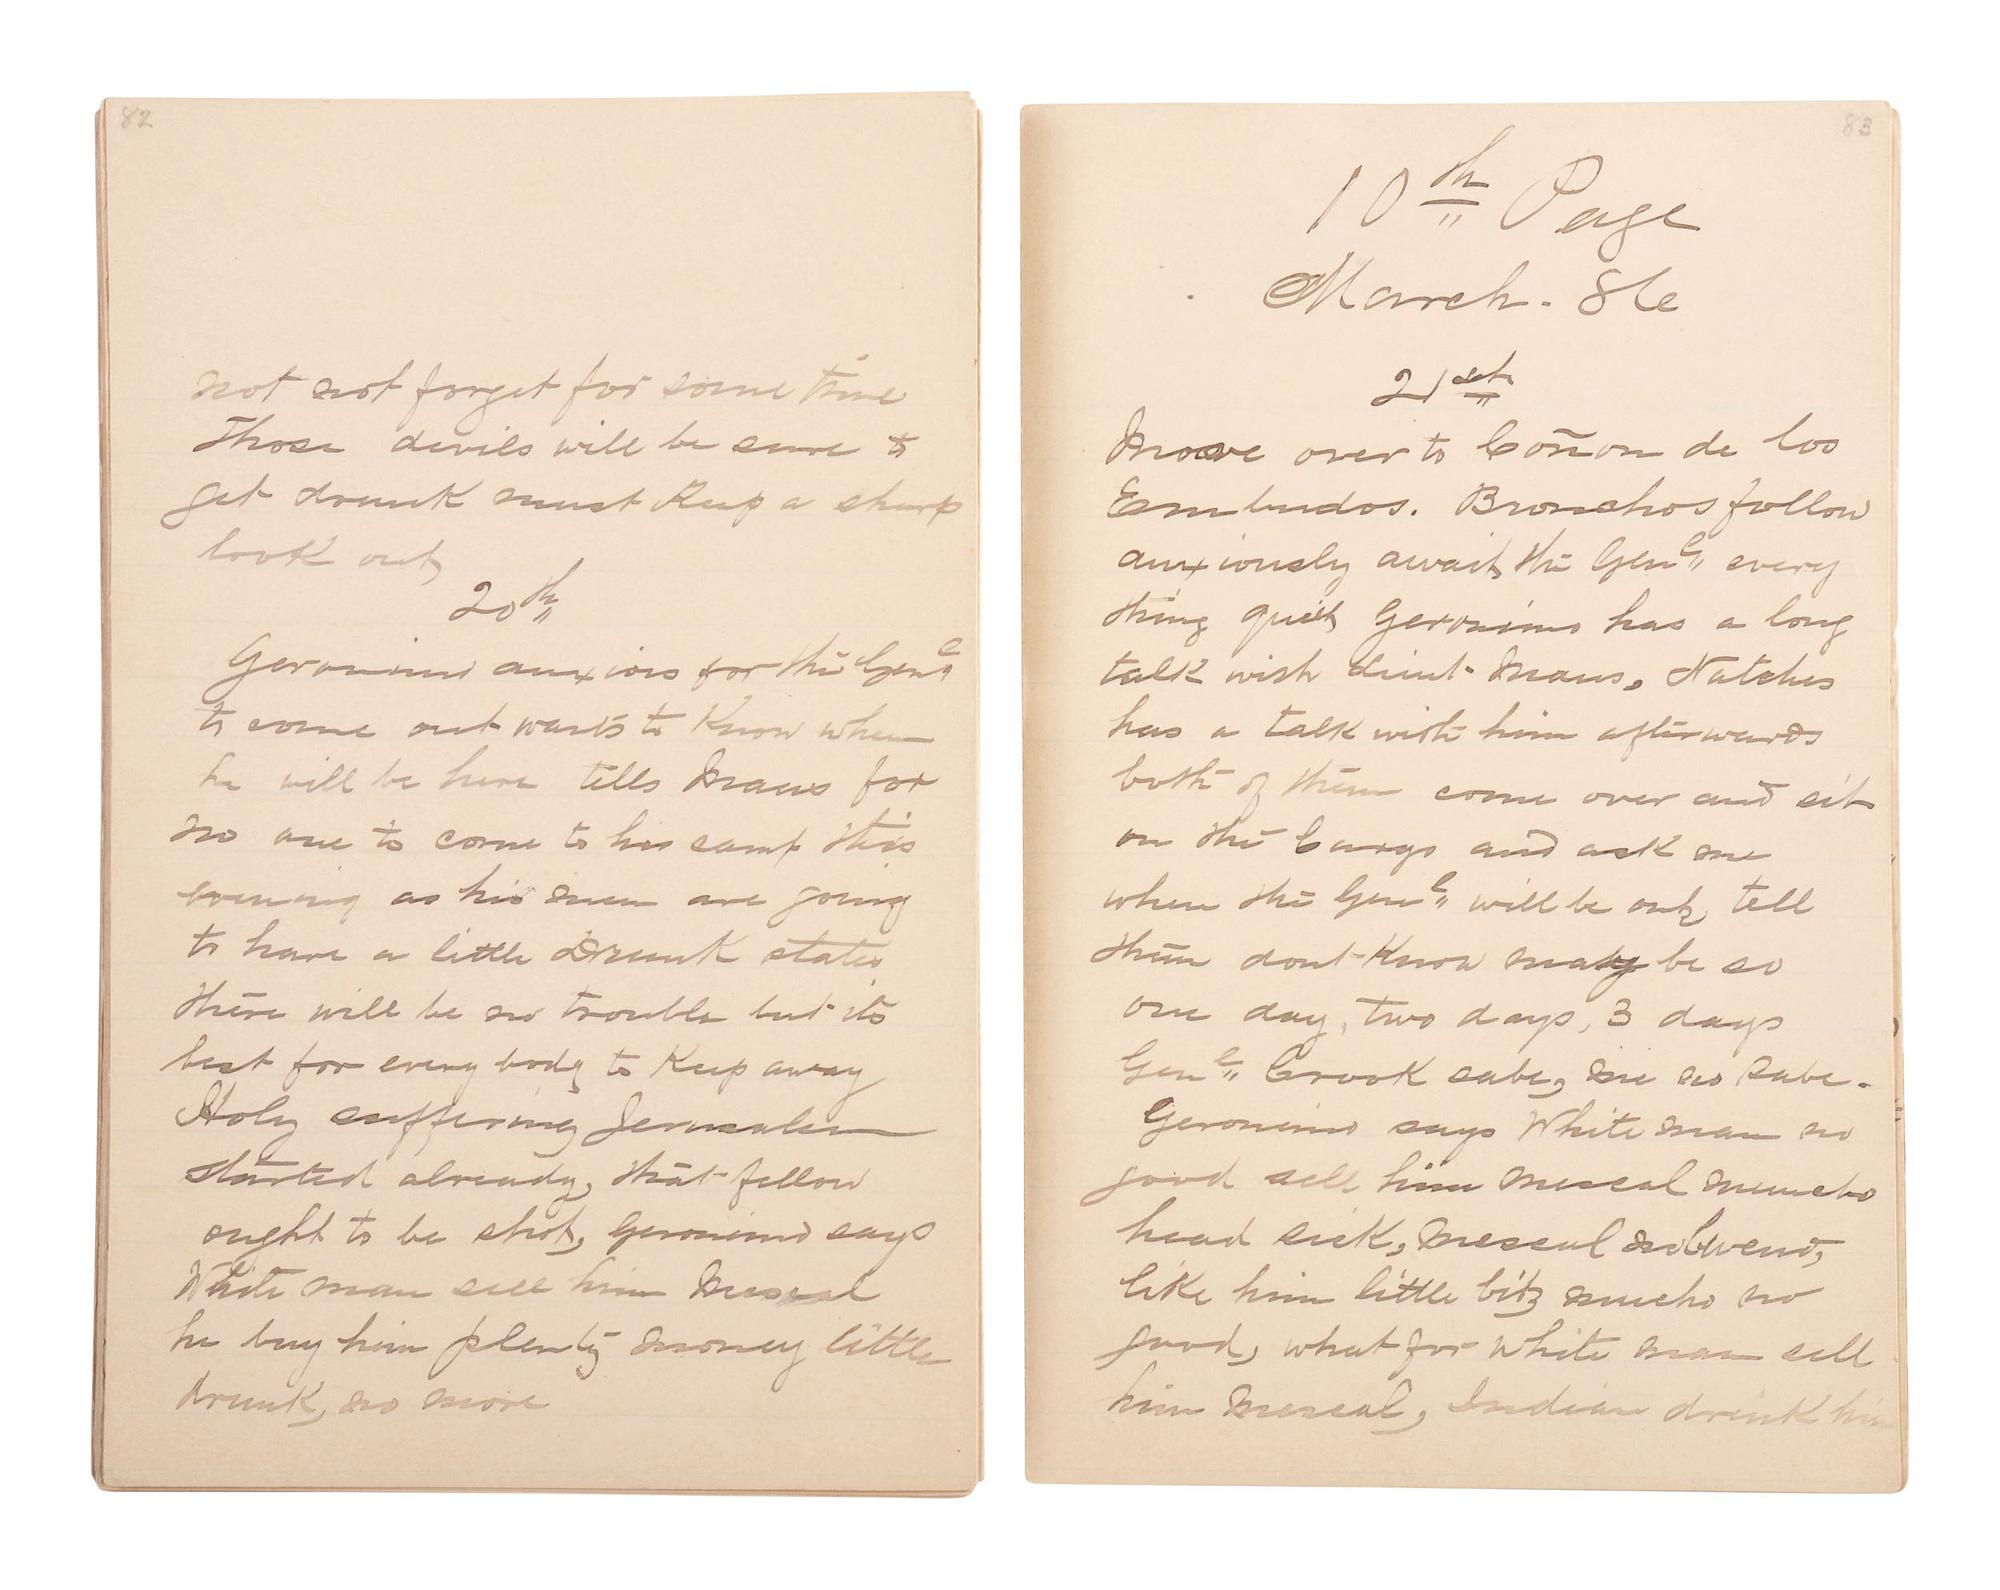 82
not not forget for some time
Those devils will be sure to
get drunk must Keep a sharp
look out,
20th
Geronimo anxious for the Genl
to come out wants to Know when
he will be here tells Maus for
no one to come to his camp this
evening as his men are going
to have a little Drunk states
there will be no trouble but its
best for every body to Keep away
Holy suffering Jerusalem
started already, that fellow
ought to be shot, Geronimo says
White man sell him Mescal
he buy him plenty money little
drunk, no more
83
10th Page
March. 86
21st
Move over to Cañon de los
Embudos. Bronchos follow
anxiously await the Genl every
thing quiet Geronimo has a long
talk with Lieut. Maus. Natches
has a talk with him afterwards
both of them come over and sit
on the Cargo and ask me
when the Genl will be out, tell
them dont Know may be so
one day, two days, 3 days
Genl Crook sabe, me no sabe.
Geronimo says White man no
good sell him mescal muncho
head sick, mescal no bueno,
like him little bit, mucho no
good, what for White man sell
him mescal, Indian drink him